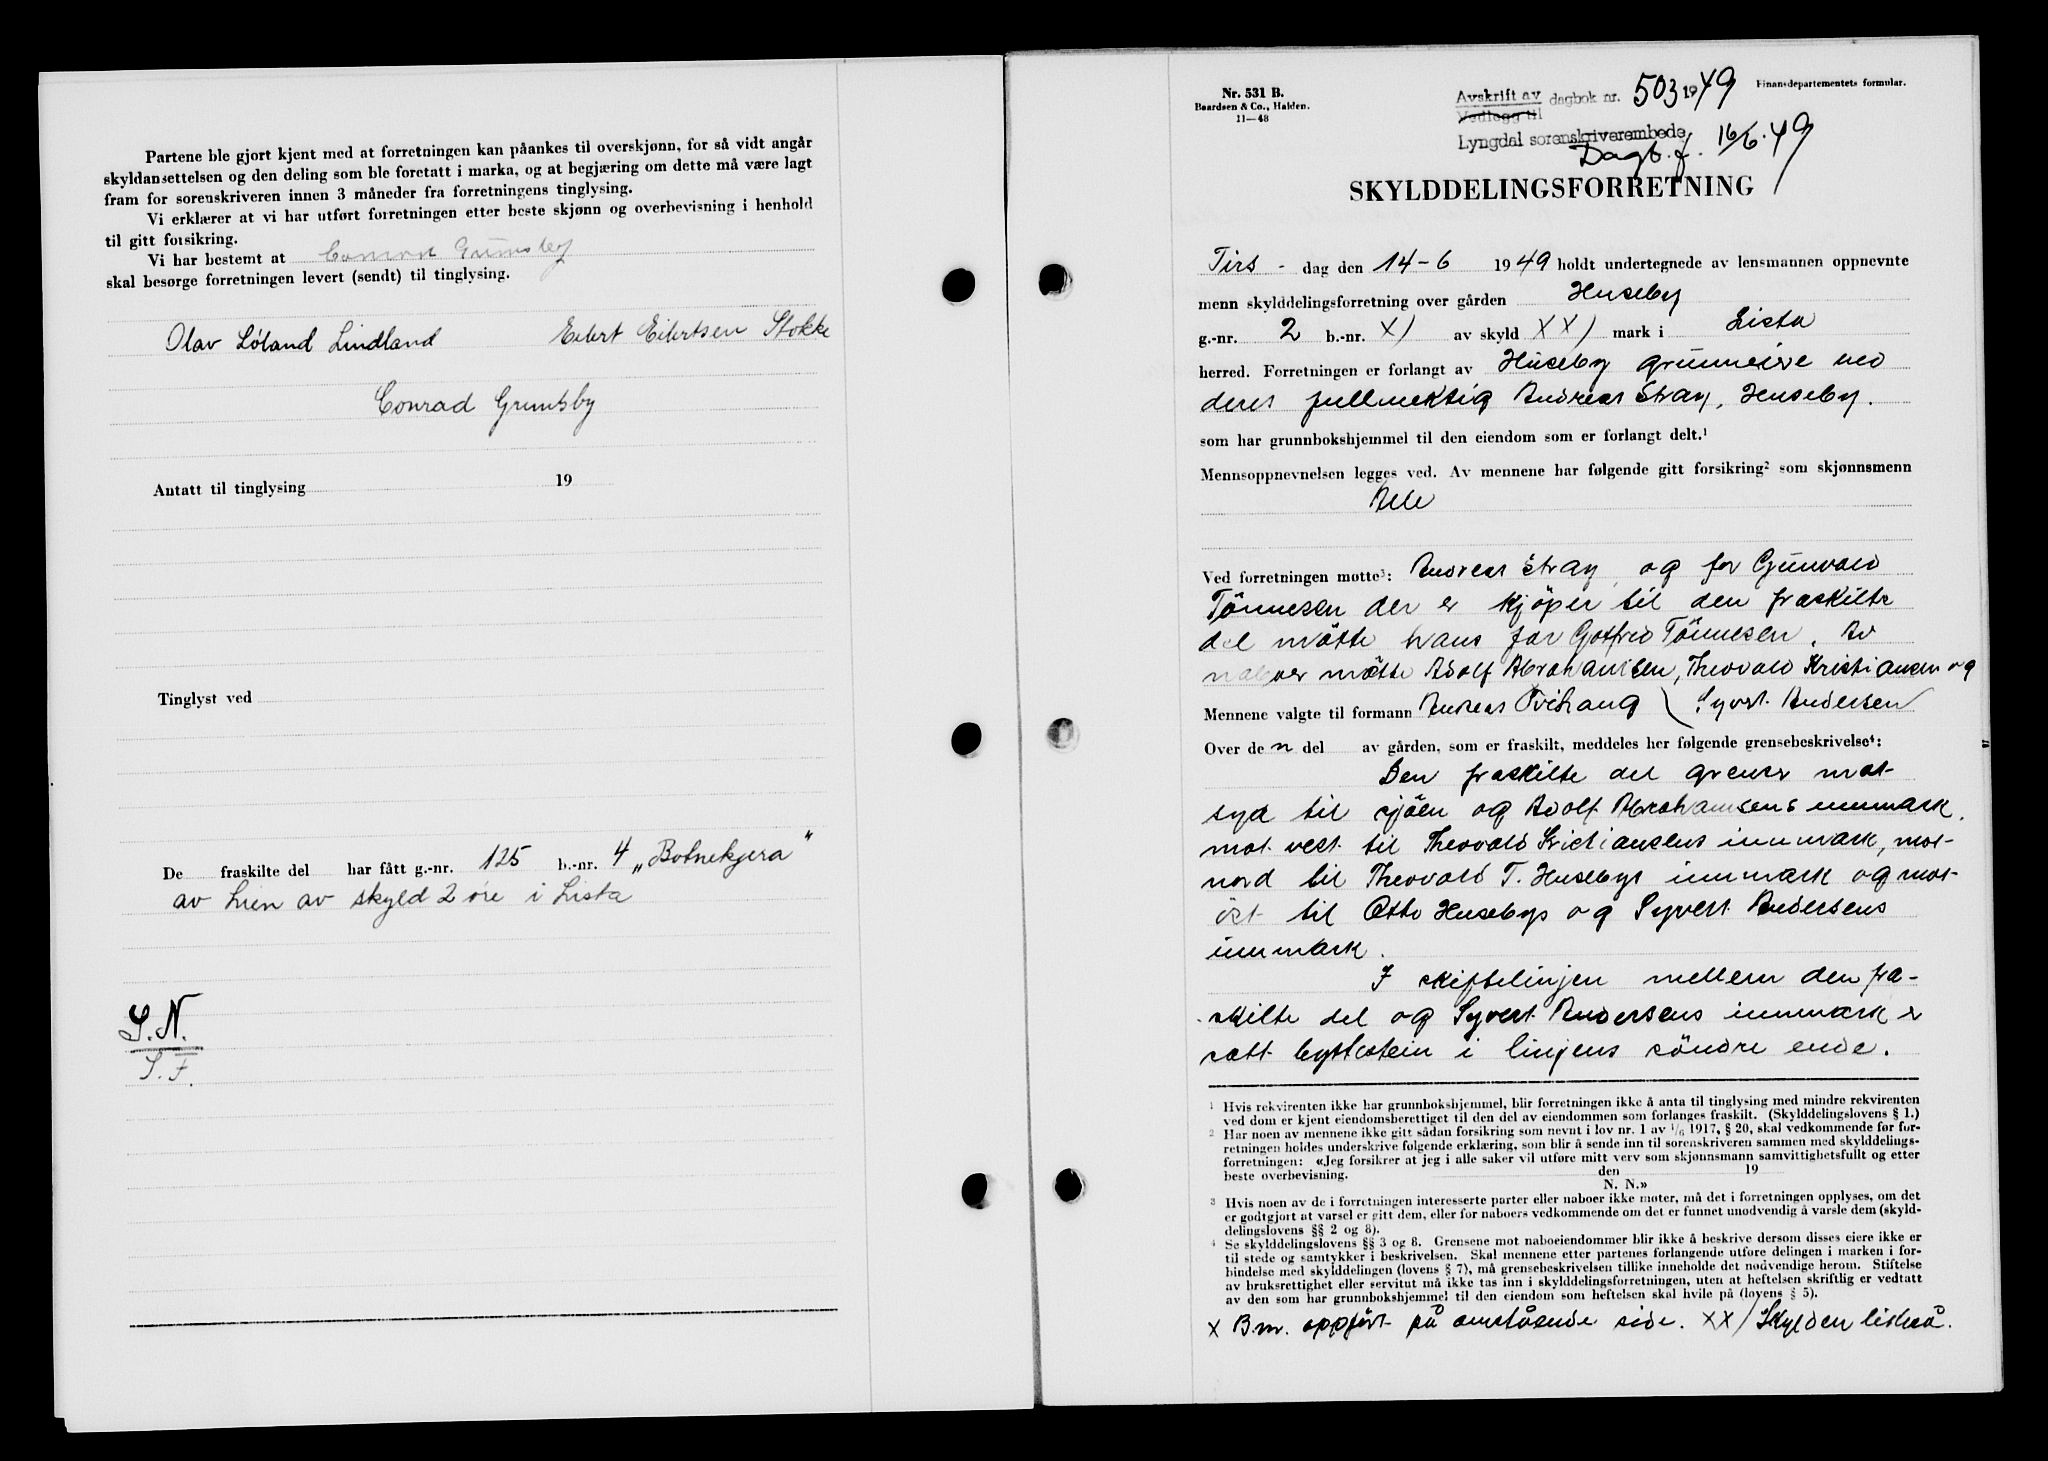 Partene ble gjort kjent med at forretningen kan påankes til overskjønn, for så vidt angår
skyldansettelsen og den deling som ble foretatt i marka, og at begjæring om dette må være lagt
fram for sorenskriveren innen 3 måneder fra forretningens tinglysing.
Vi erklærer at vi har utført forretningen etter beste skjønn og overbevisning i henhold
til gitt forsikring.
Vi har bestemt at Conrad Grimsby
skal besørge forretningen levert (sendt) til tinglysing.
Olav Løland Lindland Eilert Eilertsen Stokke
Conrad Grimsby
Antatt til tinglysing 19
Tinglyst ved
De fraskilte del har fått g.-nr. 125 b.-nr. 4 „Botnekjera"
av Lien av skyld 2 øre i Lista
S.N.
S.F.
Nr. 531 B.
Baardsen & Co., Halden.
11—48
Avskrift av dagbok nr. 503 1949 Finansdepartementets formular.
Vedlegg til
Lyngdal sorenskriverembede
Dagb.f. 16/6.49
SKYLDDELINGSFORRETNING
Tirs - dag den 14-6 1949 holdt undertegnede av lensmannen oppnevnte
menn skylddelingsforretning over gården Huseby
g.-nr. 2 b.-nr. X) av skyld XX) mark i Lista
herred. Forretningen er forlangt av Huseby grunneire ved
deres fullmektig Andreas Stray, Huseby.
som har grunnbokshjemmel til den eiendom som er forlangt delt.¹
Mennsoppnevnelsen legges ved. Av mennene har følgende gitt forsikring² som skjønnsmenn
Alle
Ved forretningen møtte³: Andreas Stray, og for Gunvald
Tönnesen der er kjöper til den fraskilte
del mötte hans far Gotfred Tönnesen. Av
naboer mötte Adolf Abrahamsen, Theovald Kristiansen og
Mennene valgte til formann Andreas \ Syvert Andersen
Over de n del av gården, som er fraskilt, meddeles her følgende grensebeskrivelse⁴:
Den fraskilte del grenser mot
syd til sjöen og Adolf Abrahamsens innmark,
mot vest til Theovald Kristiansens innmark, mot
nord til Theovald T. Husebys innmark og mot
öst til Otto Husebys og Syvert Andersens
innmark.
I skiftelinjen mellem den fra-
skilte del og Syvert Andersens innmark er
satt byttestein i linjens söndre ende.
¹ Hvis rekvirenten ikke har grunnbokshjemmel, blir forretningen ikke å anta til tinglysing med mindre rekvirenten
ved dom er kjent eiendomsberettiget til den del av eiendommen som forlanges fraskilt. (Skylddelingslovens § 1.)
² Har noen av mennene ikke gitt sådan forsikring som nevnt i lov nr. 1 av 1/6 1917, § 20, skal vedkommende før for-
retningen holdes underskrive følgende erklæring, som blir å sende inn til sorenskriveren sammen med skylddelings-
forretningen: «Jeg forsikrer at jeg i alle saker vil utføre mitt verv som skjønnsmann samvittighetsfullt og etter
beste overbevisning. den 19
N. N.»
³ Hvis noen av de i forretningen interesserte parter eller naboer ikke møter, må det i forretningen opplyses, om det
er godtgjort at varsel er gitt dem, eller for naboers vedkommende om det er funnet unødvendig å varsle dem (skyld-
delingslovens §§ 2 og 8).
⁴ Se skylddelingslovens §§ 3 og 8. Grensene mot naboeiendommer blir ikke å beskrive dersom disses eiere ikke er
til stede og samtykker i beskrivelsen. Skal mennene etter partenes forlangende utføre delingen i marken i for-
bindelse med skylddelingen (lovens § 7), må grensebeskrivelsen tillike inneholde det nødvendige herom. Stiftelse
av bruksrettighet eller servitut må ikke tas inn i skylddelingsforretningen, uten at heftelsen skriftlig er vedtatt
av den som har grunnbokshjemmel til den eiendom som heftelsen skal hvile på (lovens § 5).
X B.nr. oppfört på omstående side. XX) Skylden likeså.